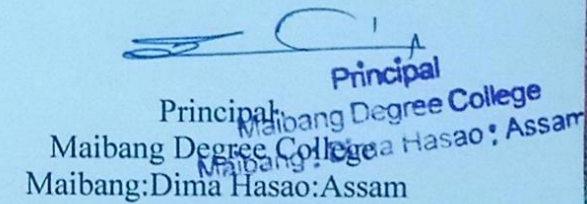 Principal
Maibang Degree College
Maibang : Dima Hasao : Assam
Principal
Maibang Degree College
Maibang:Dima Hasao:Assam